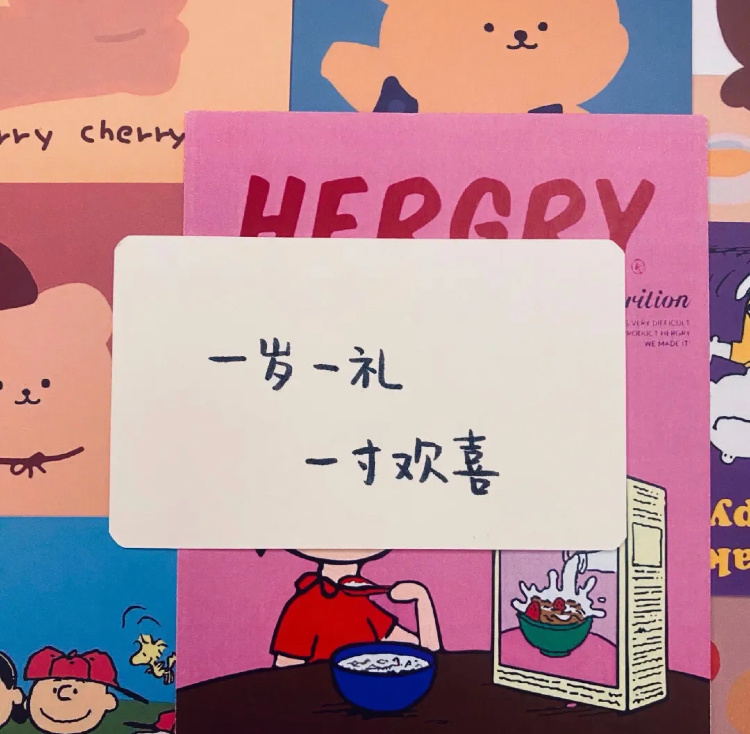 rry cherry
HERGRY
®
rition
VERY DIFFICULT
PRODUCT HERGRY
WE MADE IT
一岁一礼
一寸欢喜